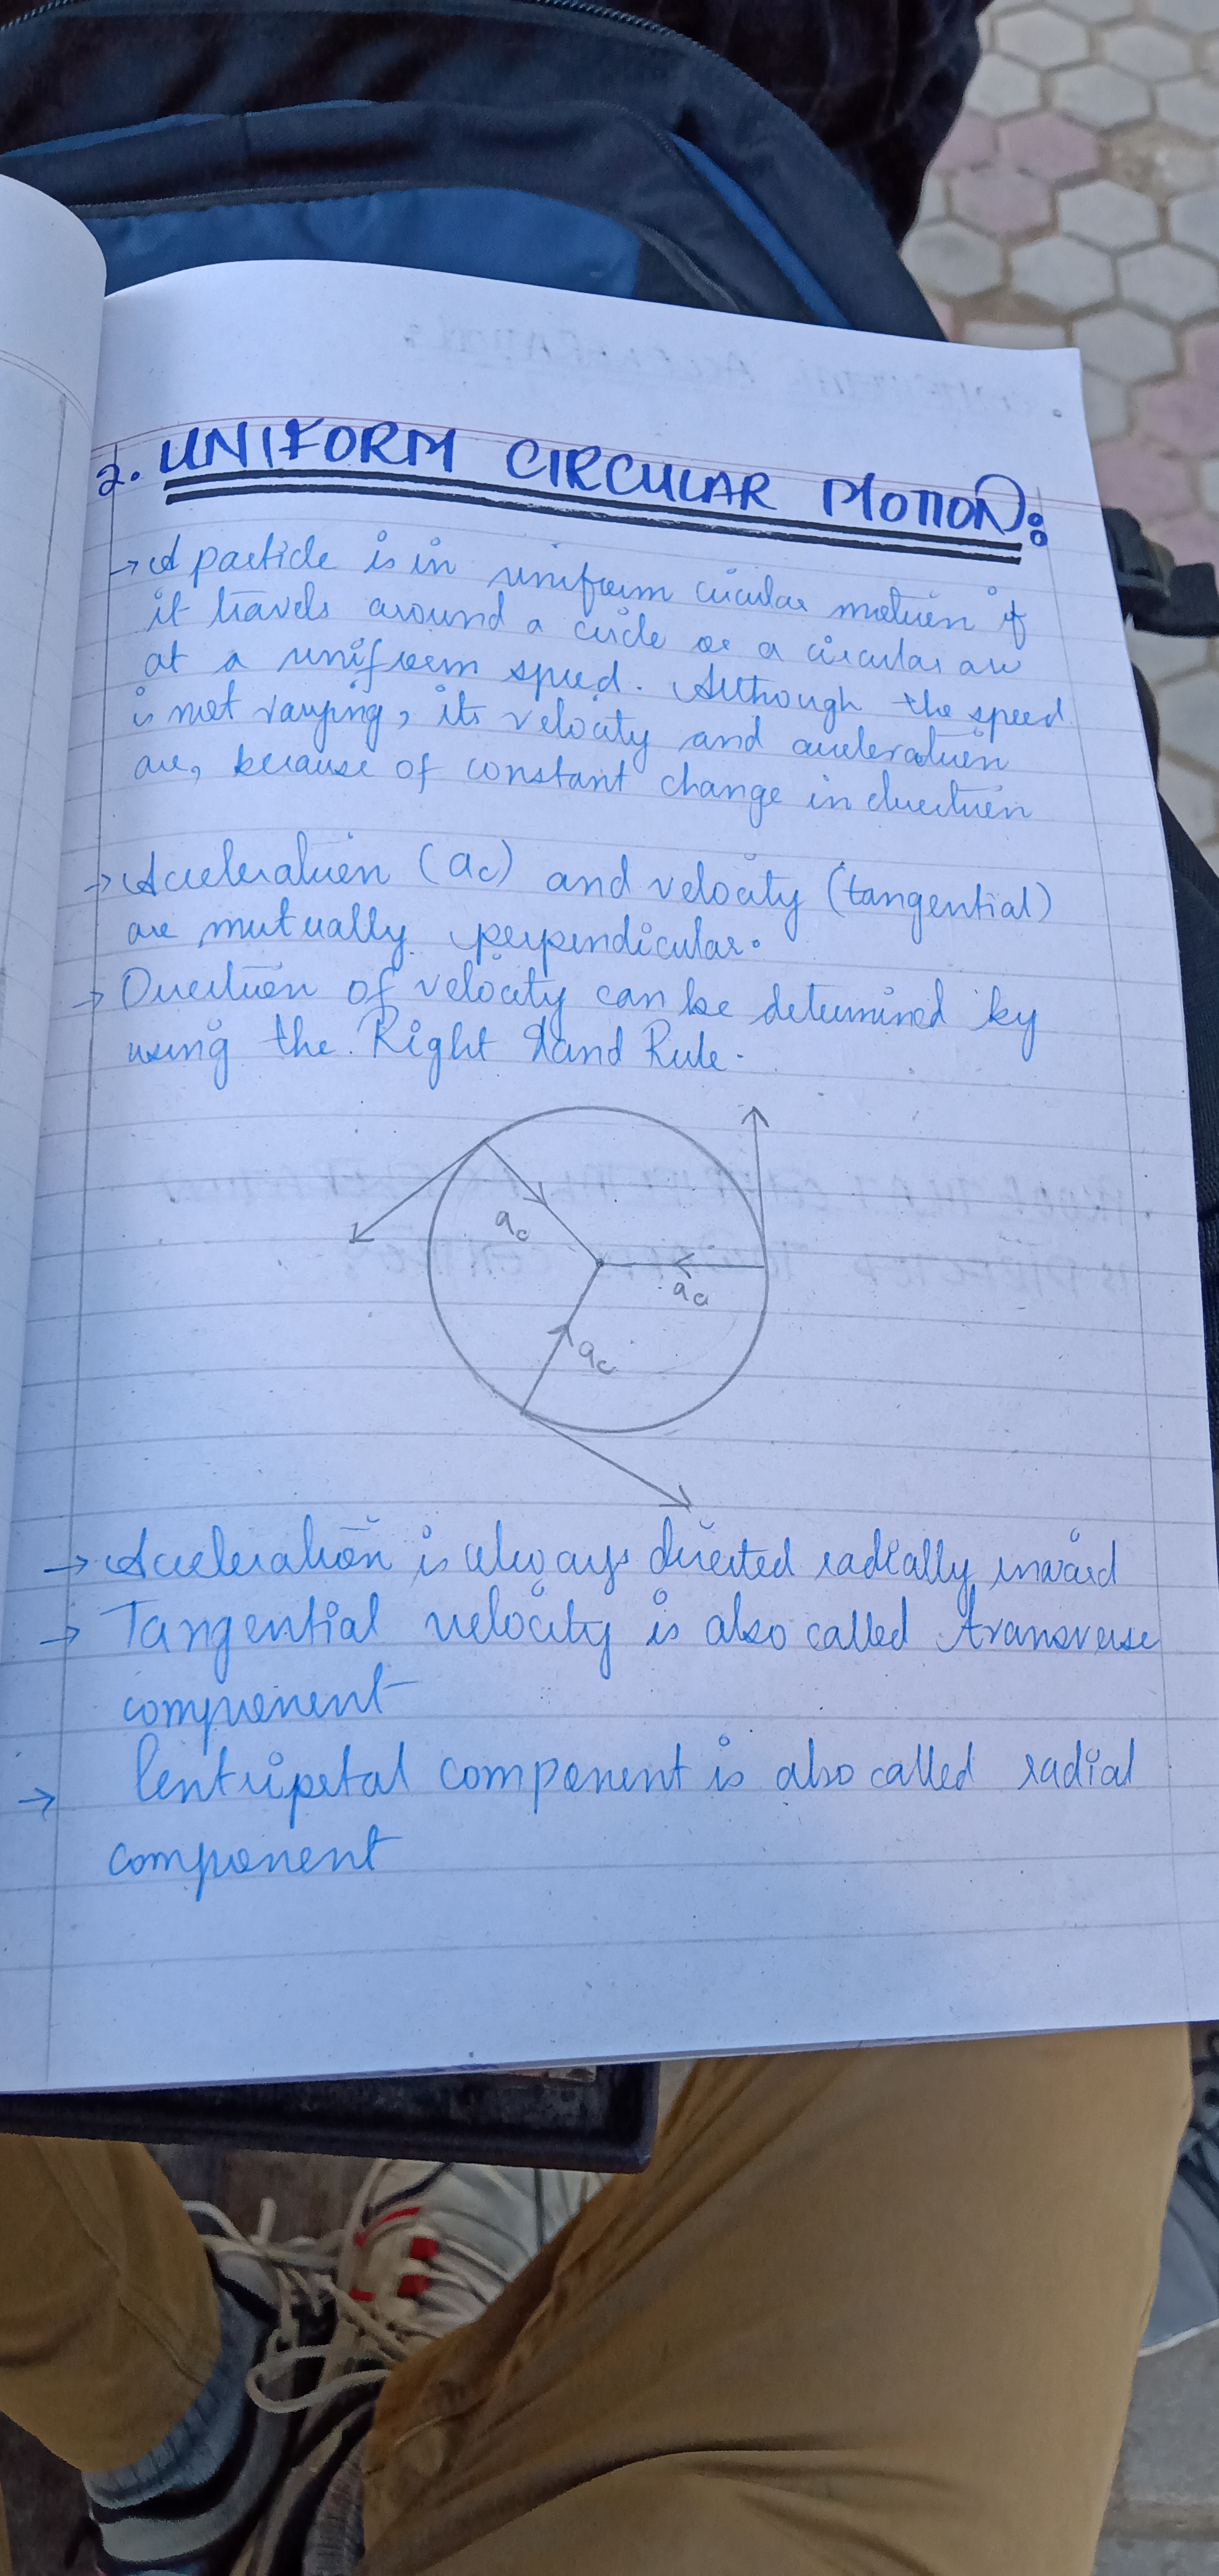 2. UNIFORM CIRCULAR MOTION:
→ A particle is in uniform circular motion if
it travels around a circle or a circular arc
at a uniform speed. Although the speed
is not varying, its velocity and acceleration
are, because of constant change in direction
→ Acceleration (ac) and velocity (tangential)
are mutually perpendicular.
→ Direction of velocity can be determined by
using the Right Hand Rule.
ac
ac
ac
→ Acceleration is always directed radially inward
→ Tangential velocity is also called transverse
component
→ Centripetal component is also called radial
component